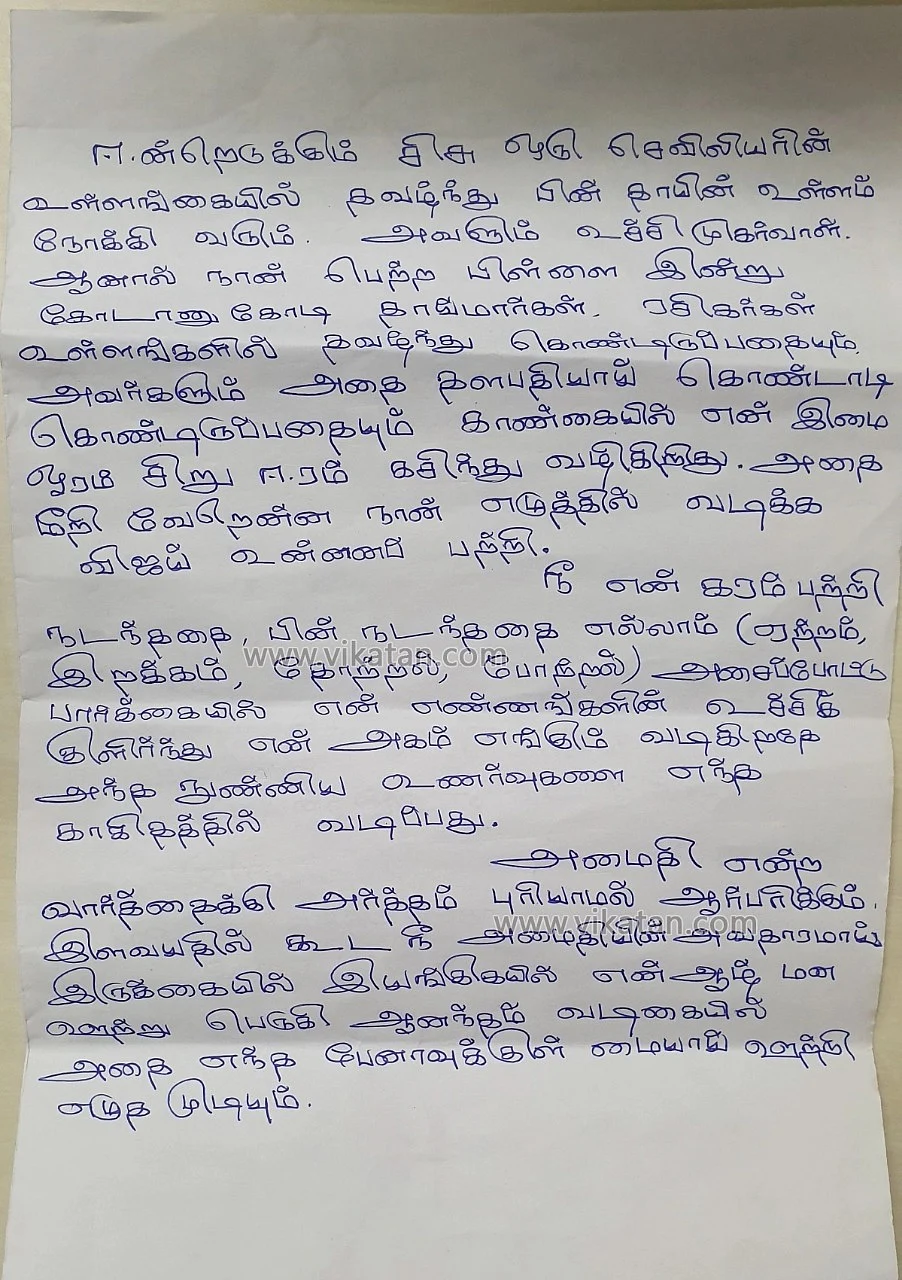 ஈன்றெடுக்கும் சிசு ஒரு செவிலியரின்
உள்ளங்கையில் தவழ்ந்து பின் தாயின் உள்ளம்
நோக்கி வரும். அவளும் உச்சி முகர்வாள்.
ஆனால் நான் பெற்ற பிள்ளை இன்று
கோடானு கோடி தாய்மார்கள், ரசிகர்கள்
உள்ளங்களில் தவழ்ந்து கொண்டிருப்பதையும்,
அவர்களும் அதை தளபதியாய் கொண்டாடி
கொண்டிருப்பதையும் காண்கையில் என் இமை
ஓரம் சிறு ஈரம் கசிந்து வழிகிறது. அதை
மீறி வேறென்ன நான் எழுத்தில் வடிக்க
விஜய் உன்னைப் பற்றி.
நீ என் கரம் பற்றி
நடந்ததை, பின் நடந்ததை எல்லாம் (ஏற்றம்,
இறக்கம், தோற்றல், போற்றல்) அசைப்போட்டு
www.vikatan.com
பார்க்கையில் என் எண்ணங்களின் உச்சிக்
குளிர்ந்து என் அகம் எங்கும் வடிகிறதே
அந்த நுண்ணிய உணர்வுகளை எந்த
காகிதத்தில் வடிப்பது.
அமைதி என்ற
வார்த்தைக்கு அர்த்தம் புரியாமல் ஆர்பரிக்கும்.
www.vikatan.com
இளவயதில் கூட நீ அமைதியின் அவதாரமாய்
இருக்கையில் இயங்குகையில் என் ஆழ் மன
ஊற்று பெருகி ஆனந்தம் வடிகையில்
அதை எந்த பேனாவுக்குள் மையாய் ஊற்றி
எழுத முடியும்.